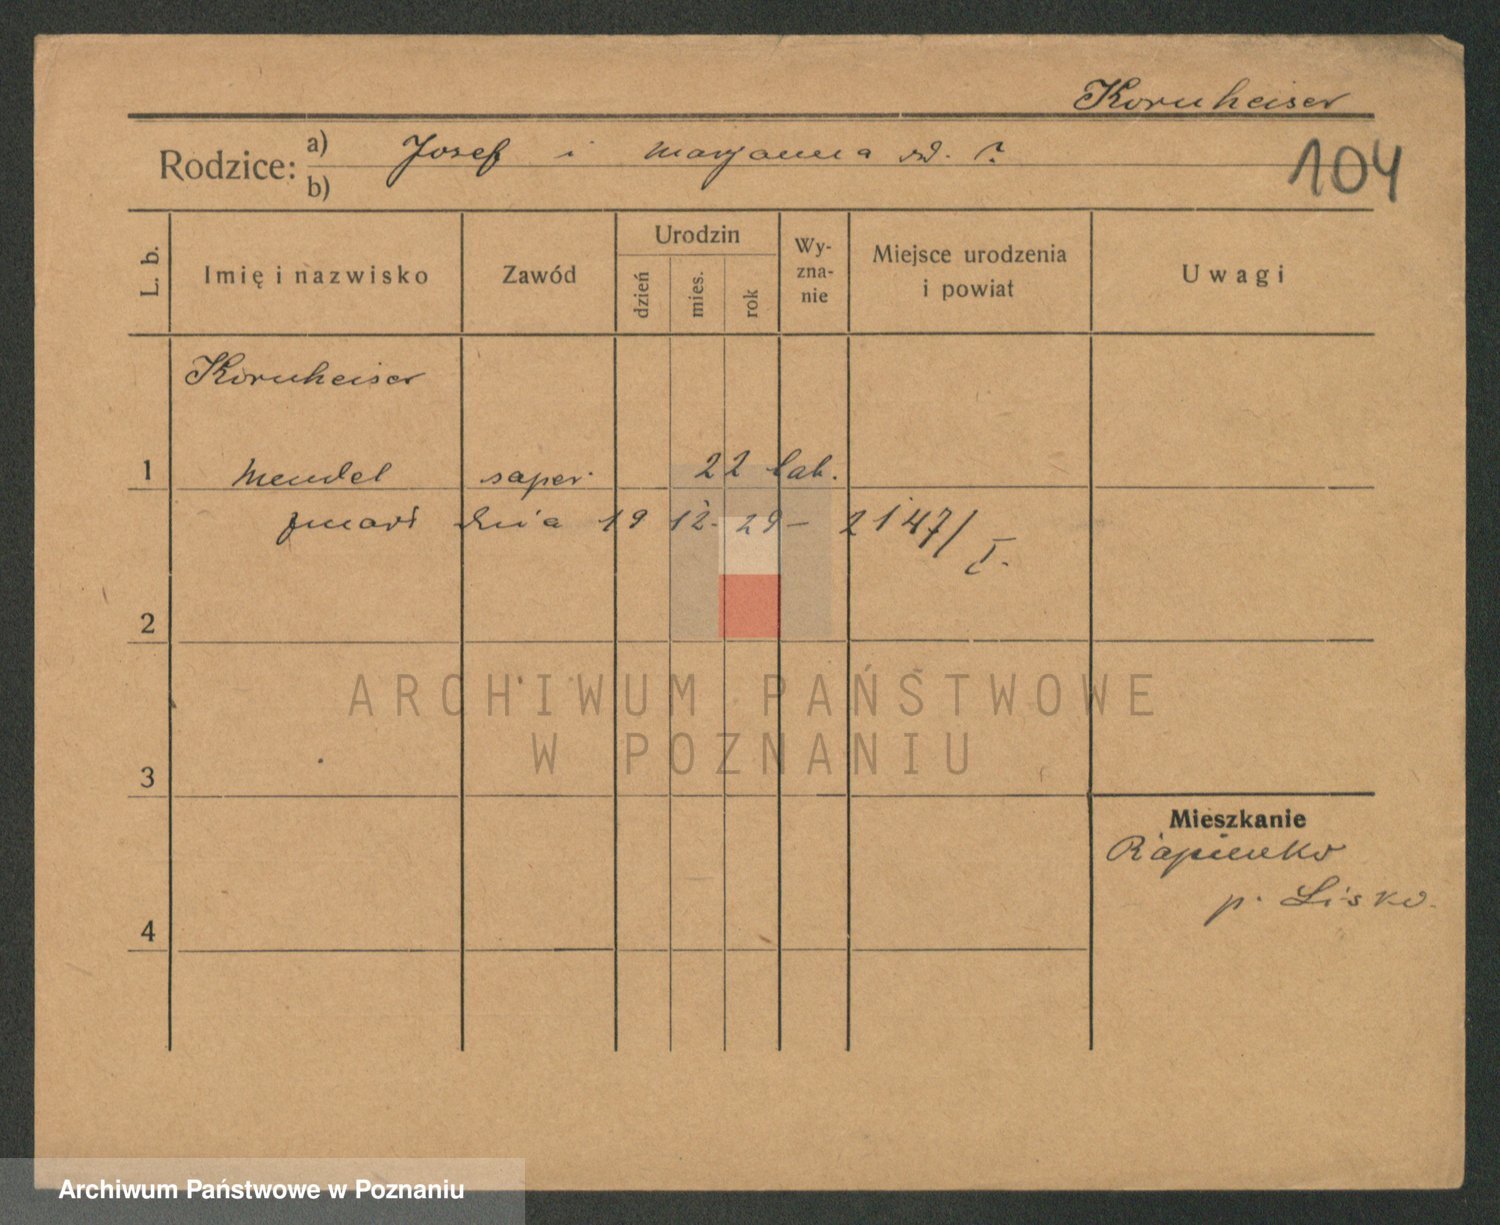 Kornheiser
Rodzice: a) Josef i Marjanna
b)
104
L. b.
Imię i nazwisko
Zawód
Urodzin
dzień
mies.
rok
Wy-
zna-
nie
Miejsce urodzenia
i powiat
Uwagi
Kornheiser
1 Mendel saper 22 lat.
zmarł dnia 19 12. 29 – 2147/I.
2
3
4
Mieszkanie
p. Lisko.
ARCHIWUM PAŃSTWOWE
W POZNANIU
Archiwum Państwowe w Poznaniu